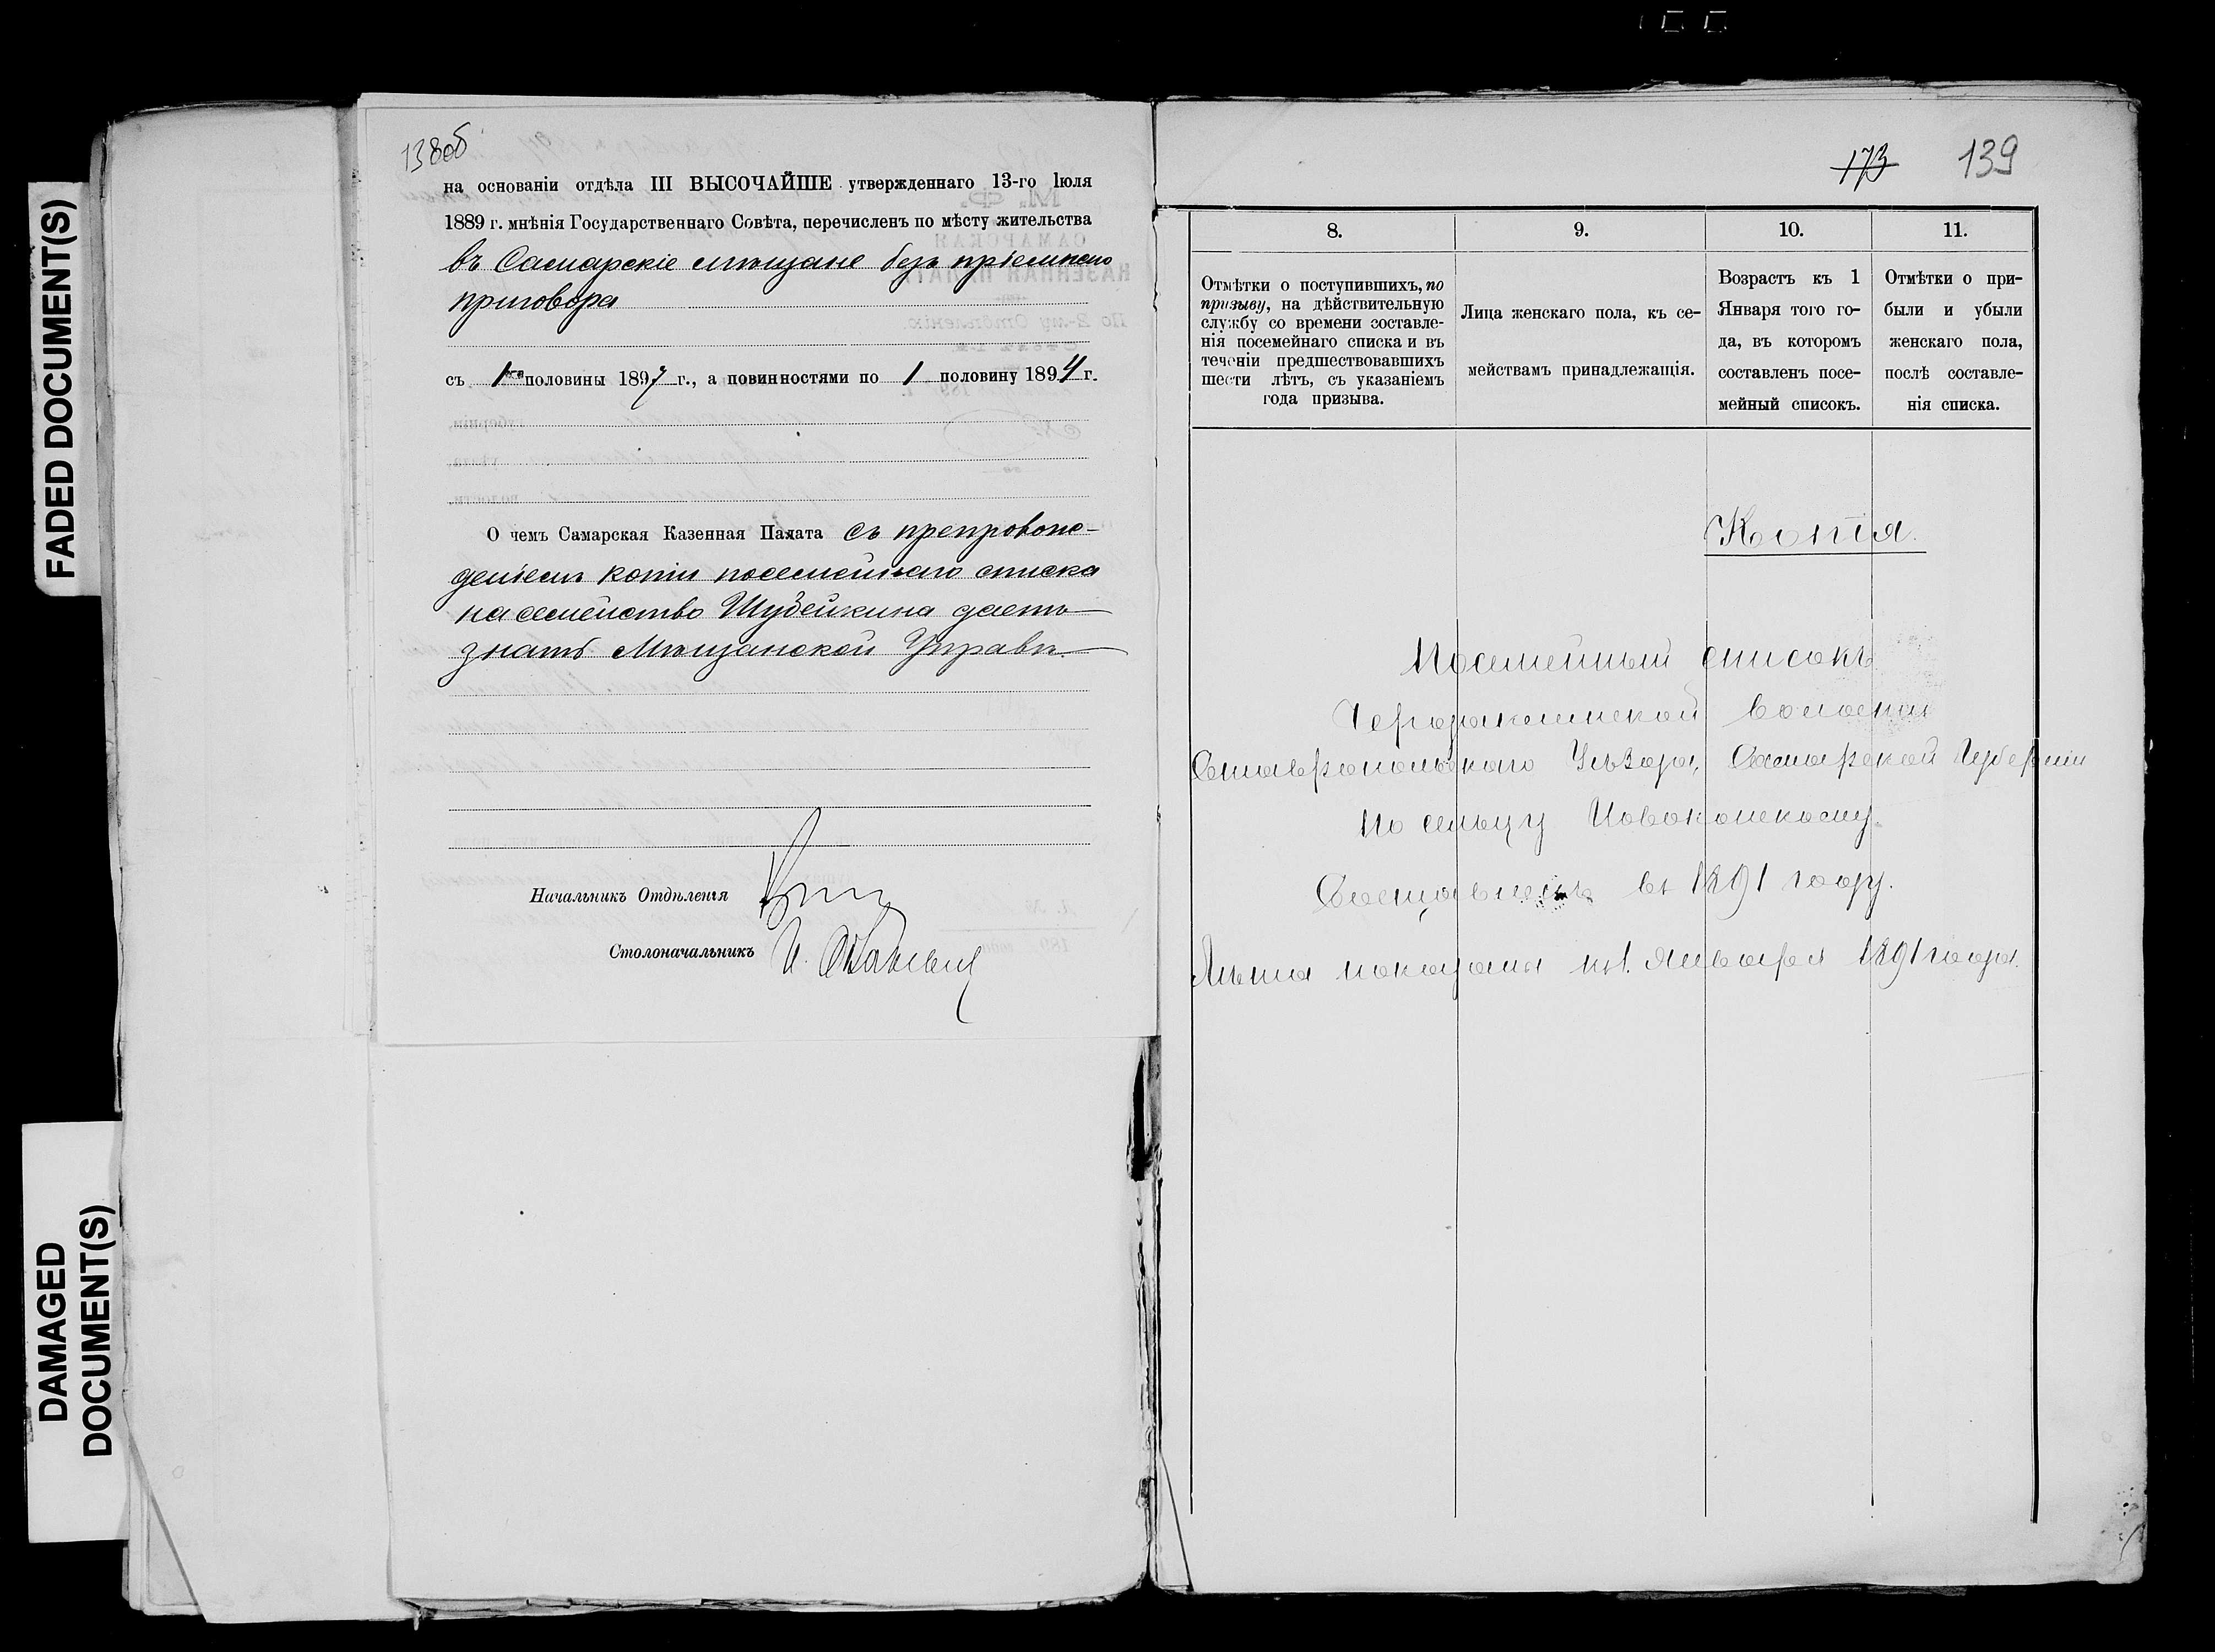 FADED DOCUMENT(S)
DAMAGED
DOCUMENT(S)
138об
на основаніи отдѣла III ВЫСОЧАЙШЕ утвержденнаго 13-го Іюля
1889 г. мнѣнія Государственнаго Совѣта, перечисленъ по мѣсту жительства
въ Самарскіе мѣщане безъ пріемнаго
приговора
съ 1-ой половины 1897 г., а повинностями по 1 половину 1894 г.
О чемъ Самарская Казенная Палата съ препровож-
деніемъ копіи посемейнаго списка
на семейство Шубейкина даетъ
знать Мѣщанской Управѣ
Начальникъ Отдѣленія
Столоначальникъ
173 139
8. 9. 10. 11.
Отмѣтки о поступившихъ, по
призыву, на дѣйствительную
службу со времени составле-
нія посемейнаго списка и въ
теченіи предшествовавшихъ
шести лѣтъ, съ указаніемъ
года призыва.
Лица женскаго пола, къ се-
мействамъ принадлежащія.
Возрастъ къ 1
Января того го-
да, въ которомъ
составленъ посе-
мейный списокъ.
Отмѣтки о при-
были и убыли
женскаго пола,
послѣ составле-
нія списка.
Копія.
Посемейный списокъ
волости
Ставропольскаго Уѣзда, Самарской Губерніи
по сельцу
Составленъ въ 1891 году.
Лѣта показаны къ 1 Января 1891 года.